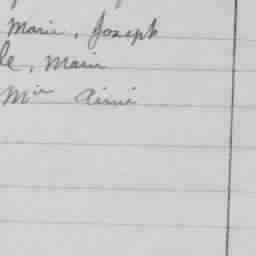 Marie, Joseph
le, Marie
Mie Aimé